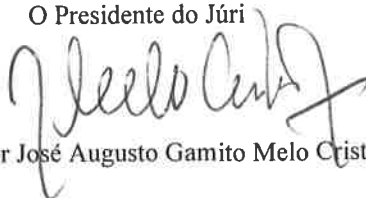 O Presidente do Júri
Melo Cristo
r José Augusto Gamito Melo Crist